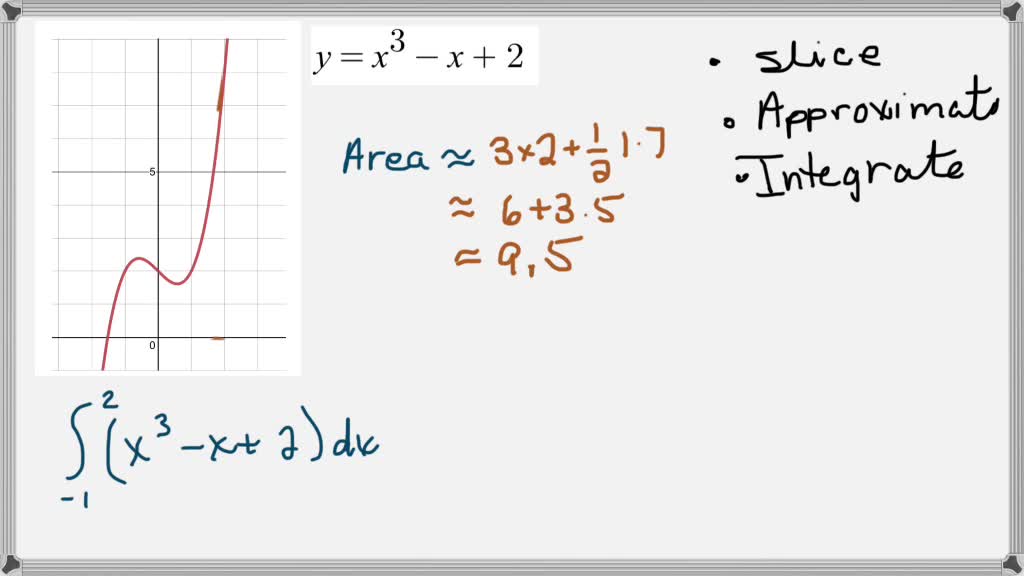 y = x³ − x + 2
• slice
• Approximate
• Integrate
Area ≈ 3×2+½1·7
≈ 6+3.5
≈ 9,5
5
0
∫₋₁² (x³ −x+ 2) dx